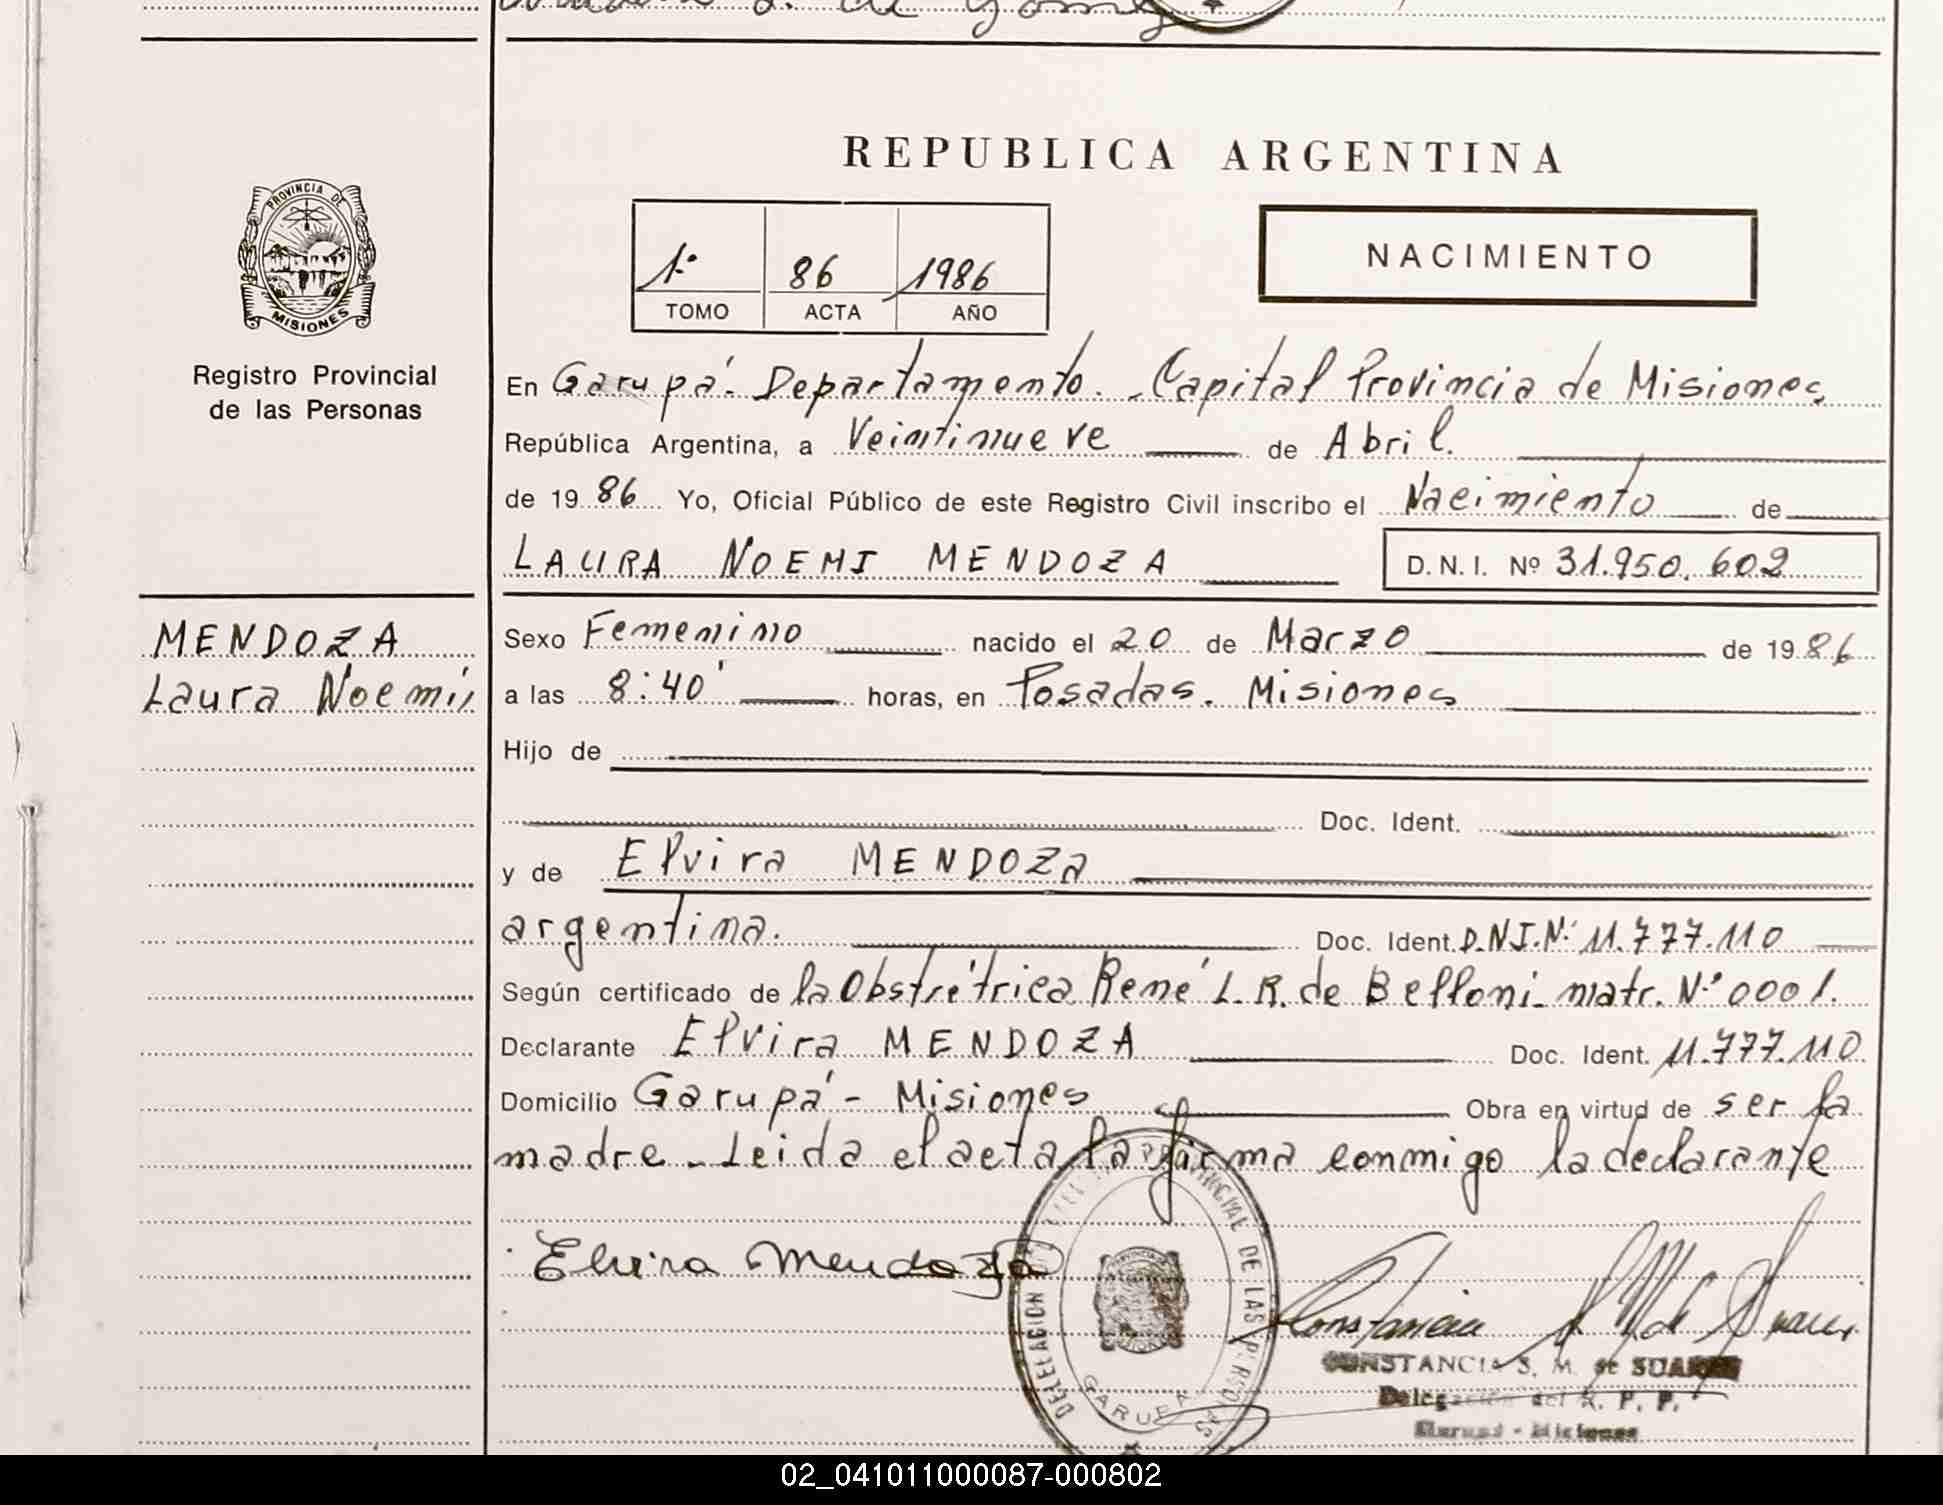 PROVINCIA DE
MISIONES
Registro Provincial
de las Personas
MENDOZA
Laura Noemi
REPUBLICA ARGENTINA
1º 86 1986
TOMO ACTA AÑO
NACIMIENTO
En Garupá- Departamento. Capital Provincia de Misiones,
República Argentina, a Veintinueve de Abril.
de 19 86 Yo, Oficial Público de este Registro Civil inscribo el Nacimiento de
LAURA NOEMI MENDOZA D.N.I. Nº 31.950.602
Sexo Femenino nacido el 20 de Marzo de 19 86
a las 8:40' horas, en Posadas. Misiones
Hijo de
Doc. Ident.
y de Elvira MENDOZA
argentina. Doc. Ident. D.N.I.Nº 11.777.110
Según certificado de la Obstrétrica René L.R. de Belloni- matr. Nº 0001.
Declarante Elvira MENDOZA Doc. Ident. 11.777.110
Domicilio Garupá - Misiones Obra en virtud de ser la
madre - Leida el acta la firma conmigo la declarante
Elvira Mendoza
DELEGACION PROVINCIAL DE LAS PERSONAS
GARUPA
CONSTANCIA S. M. de SUAREZ
Delegación del R. P. P.
Garupá - Misiones
02_041011000087-000802